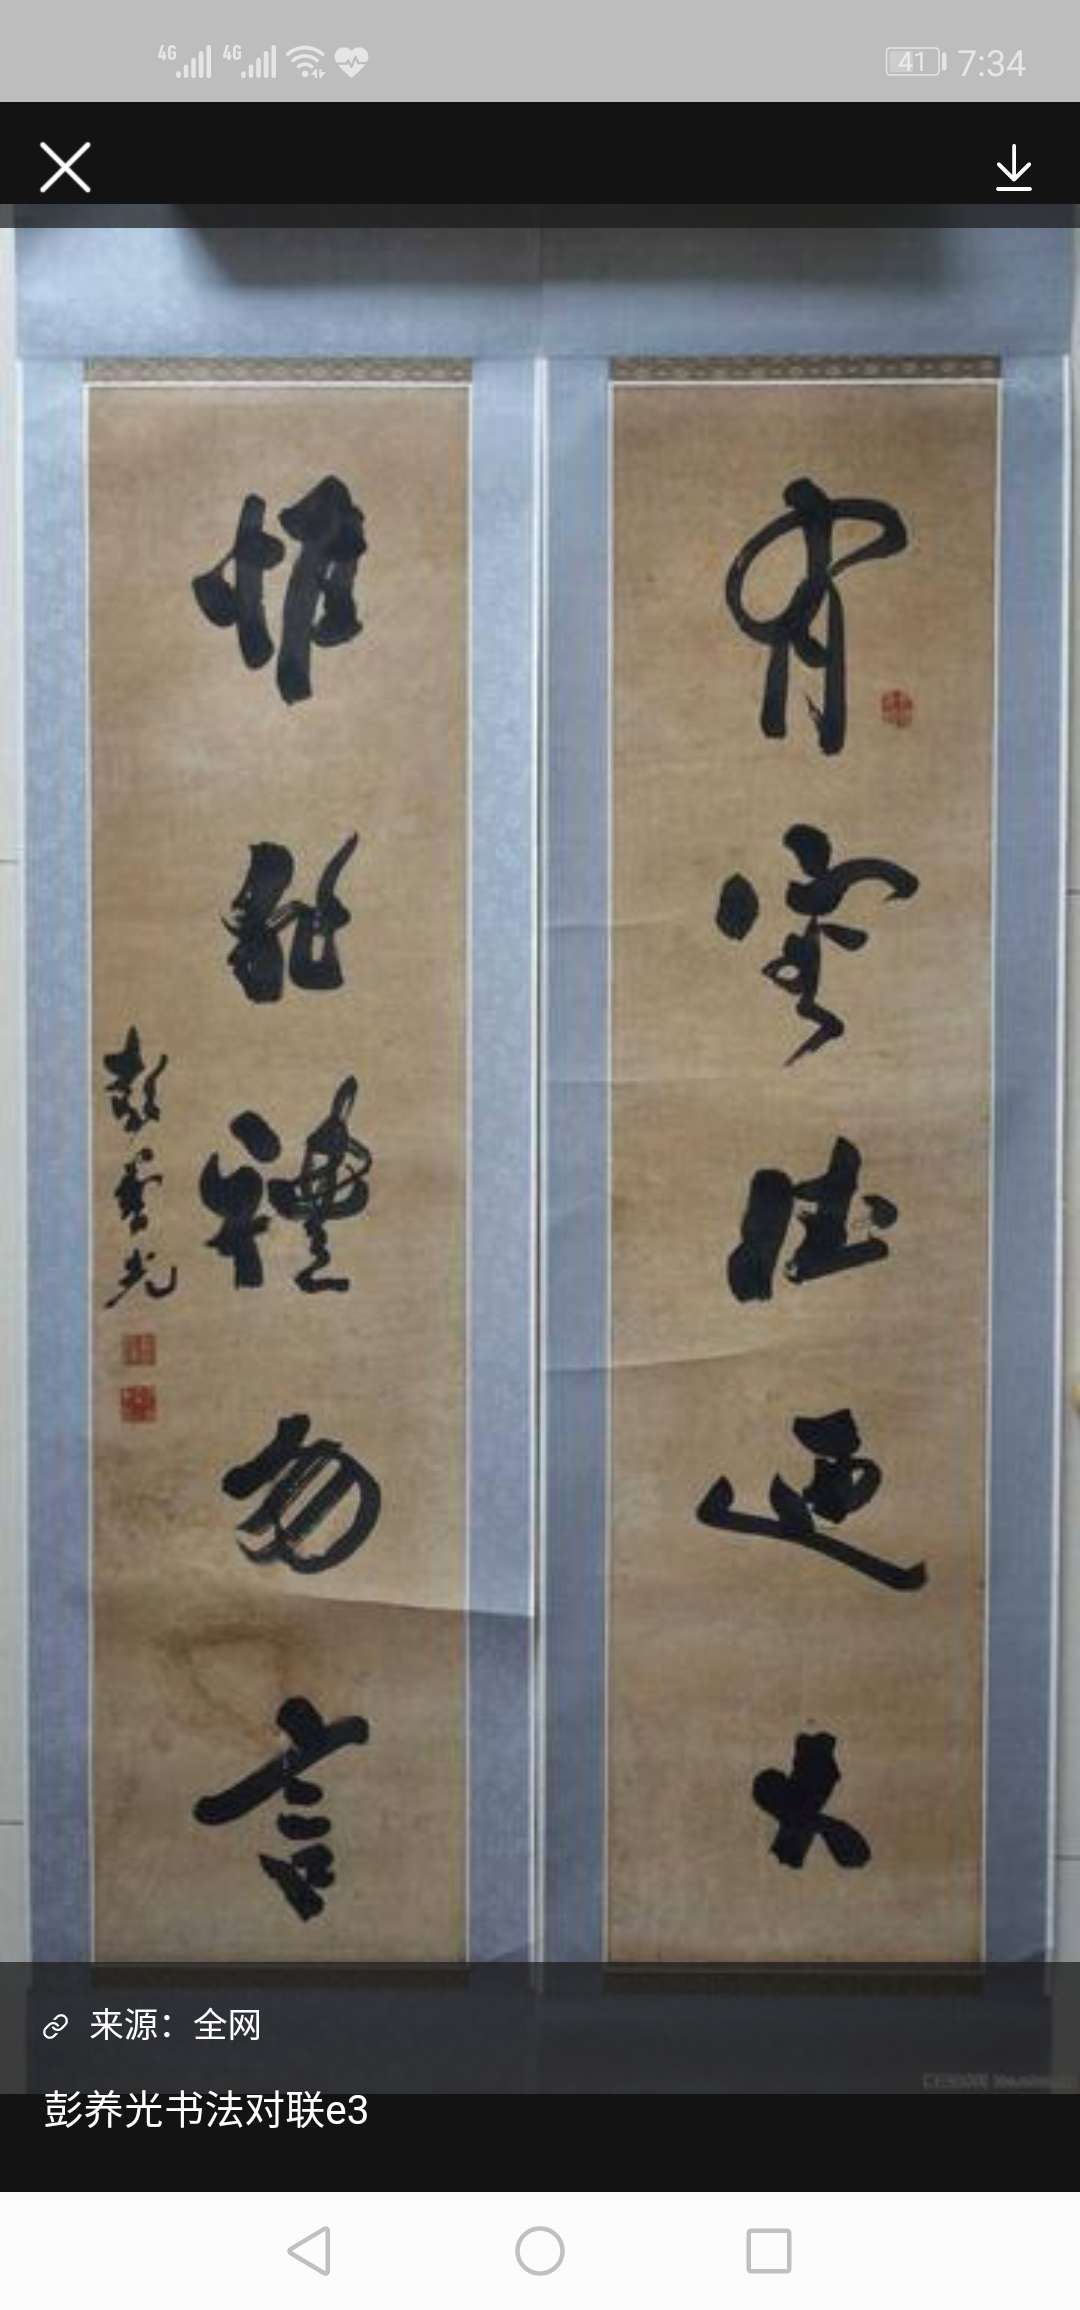 4G 4G 41 7:34
有容德迺大
惟 禮勿言
彭養光
来源：全网
彭养光书法对联e3